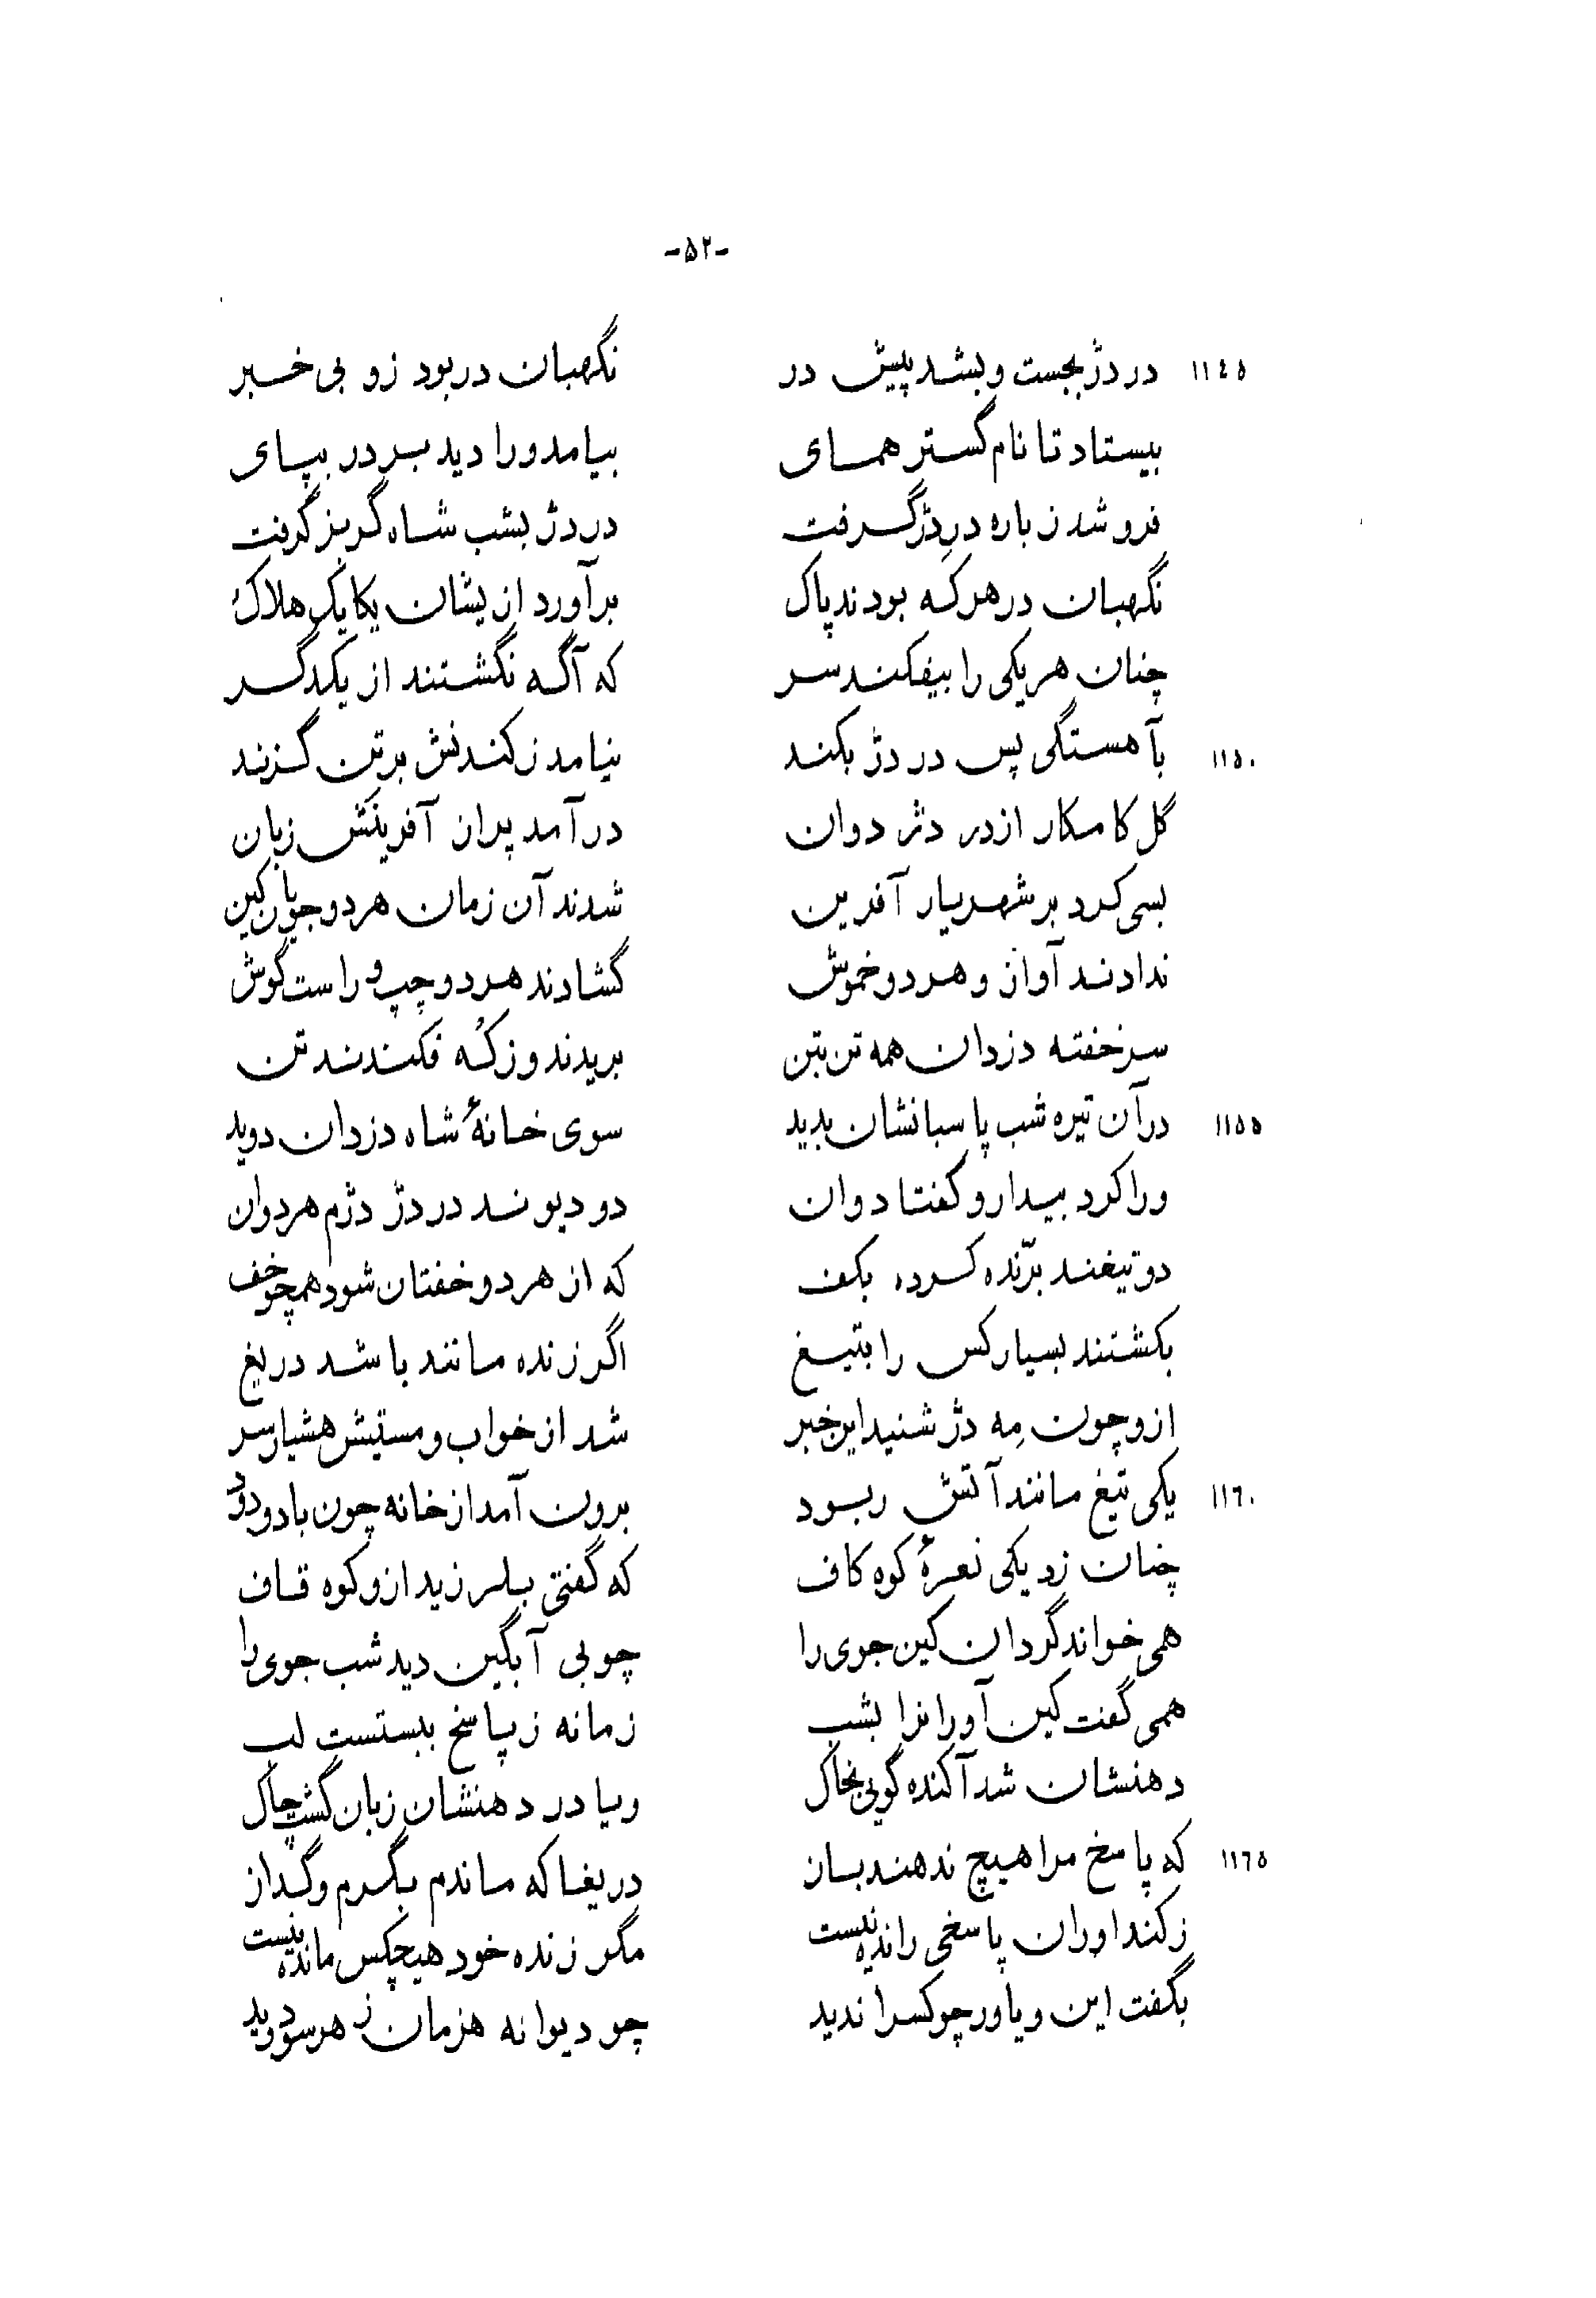 -۵۲-
۱۱٤٥ در دژ بجست و بشد پیش در نگهبان در بود زو بی خبر
بیستاد تا نام گستر همای بیامد ورا دید بر در بپای
فرو شد ز باره درِ دژ گرفت در دژ بشب شاه گربز گرفت
نگهبان در هر که بودند پاک برآورد ازیشان یکایک هلاک
چنان هر یکی را بیفکند سر که آگه نگشتند از یکدگر
۱۱۵۰ بآهستگی پس در دژ بکند نیامد ز کندنش بر تن گزند
گل کامکار از در دژ دوان درآمد پران آفرینش زبان
بسی کرد بر شهریار آفرین شدند آن زمان هر دو جویان کین
ندادند آواز و هر دو خموش گشادند هر دو چپ و راست گوش
سر خفته دزدان همه تن بتن بریدند وز که فکندند تن
۱۱۵۵ در آن تیره شب پاسبانشان بدید سوی خانهٔ شاه دزدان دوید
ورا کرد بیدار و گفتا دوان دو دیوند در دژ دژم هر دوان
دو تیغند برّنده کرده بکف که از هر دو خفتان شود همچو خف
بکشتند بسیار کس را بتیغ اگر زنده مانند باشد دریغ
ازو چون مِه دژ شنید این خبر شد از خواب و مستیش هشیار سر
۱۱٦۰ یکی تیغ مانند آتش ربود برون آمد از خانه چون باد و دود
چنان زد یکی نعرهٔ کوه کاف که گفتی بلرزید ازو کوه قاف
همی خواند گردان کین جوی را چو بی آبگین دید شب جوی را
همی گفت کین آورانرا بشب زمانه ز پاسخ ببستست لب
دهنشان شد آکنده گویی بخاک ویا در دهنشان زبان گشت چاک
۱۱٦٥ که پاسخ مرا هیچ ندهند باز دریغا که ماندم بگرم و گداز
ز کنداوران پاسخی رانده نیست مگر زنده خود هیچکس مانده نیست
بگفت این و یاور چو کسرا ندید چو دیوانه هزمان ز هر سو دوید